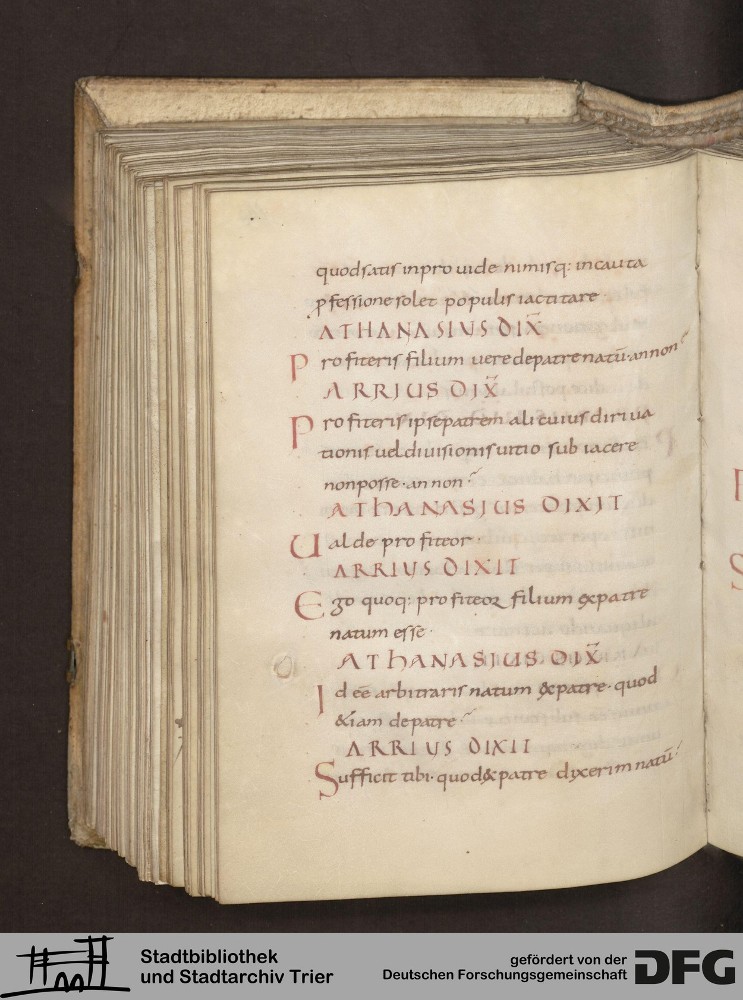 quod satis inprouide nimisq: incauta
ꝓfessione solet populis iactitare
ATHANASIUS DIX̄
Profiteris filium uere de patre natū· an non
ARRIUS DIX̄
Profiteris ipse patrem alicuius diriua
tionis uel diuisionis uitio subiacere
non posse· an non
AThANASIUS DIXIT
Ualde profiteor·
ARRIUS DIXIT
Ego quoq: profiteor filium expatre
natum esse·
AThANASIUS DIX̄
Id eē arbitraris natum expatre· quod
&iam de patre
ARRIUS DIXIT
Sufficit tibi· quod expatre dixerim natū
Stadtbibliothek
und Stadtarchiv Trier
gefördert von der
Deutschen Forschungsgemeinschaft
DFG